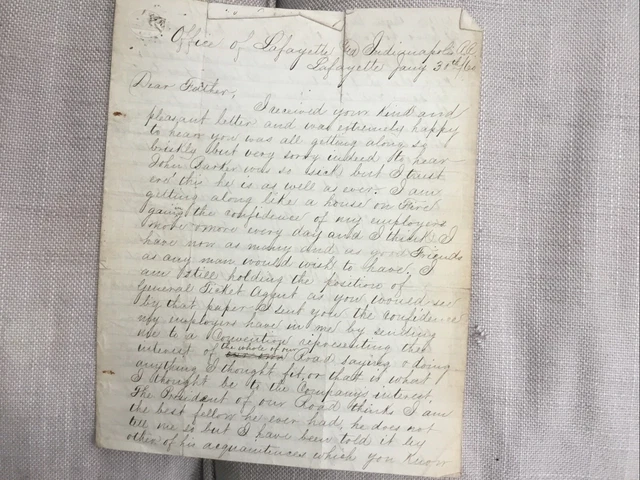 Office of Lafayette & Indianapolis R.R.
Lafayette Jany 30th/60
Dear Father,
I received your kind and
pleasant letter and was extremely happy
to hear you was all getting along so
briskly but very sorry indeed to hear
John Barker was so sick but I trust
ere' this he is as well as ever. I am
getting along like a house on Fire
gaing the confidence of my employers
more & more every day and I think I
have now as many and as good Friends
as any man would wish to have, I
am still holding the position of
General Ticket Agent as you would see
by that paper I sent you the confidence
my employers have in me by sending
me to a Convention representing the
interest of the whole of our Road saying & doing
anything I thought fit, or that is what
I thought be to the Companys interest,
The President of our Road thinks I am
the best fellow he ever had, he does not
tell me so but I have been told it by
other of his acquaintances which you know